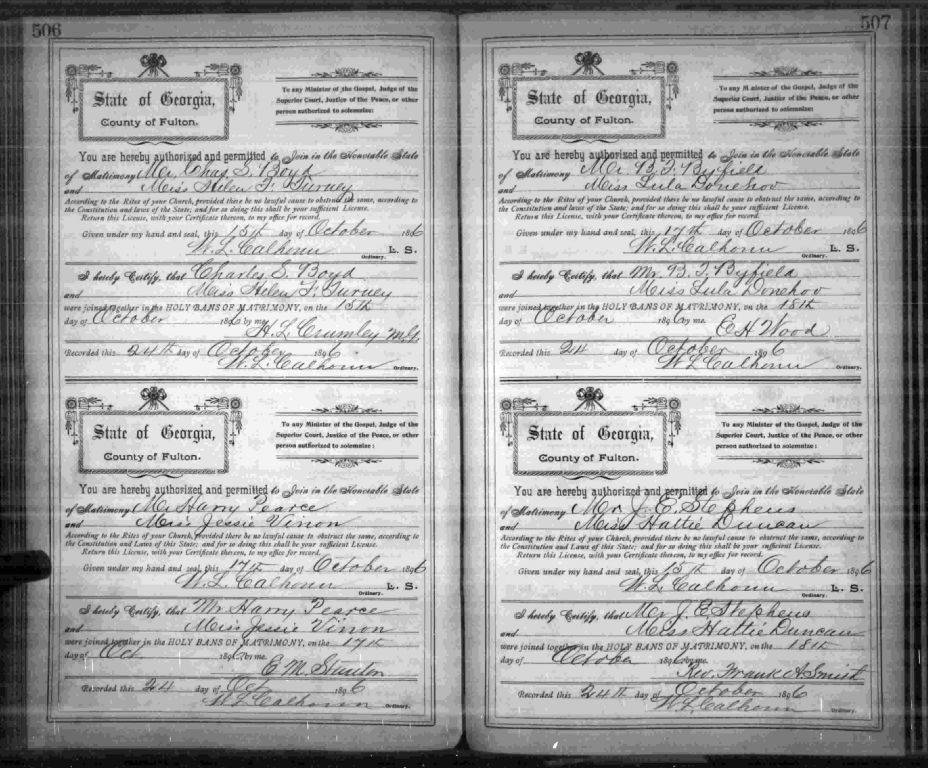 506
State of Georgia,
County of Fulton.
To any Minister of the Gospel, Judge of the
Superior Court, Justice of the Peace, or other
person authorized to solemnize:
You are hereby authorized and permitted to Join in the Honorable State
of Matrimony Mr. Chas. S. Boyd
and Miss Helen F. Turney
According to the Rites of your Church, provided there be no lawful cause to obstruct the same, according to
the Constitution and laws of the State; and for so doing this shall be your sufficient License.
Return this License, with your Certificate thereon, to my office for record.
Given under my hand and seal, this 15th day of October 1896
W. L. Calhoun L. S.
Ordinary.
I hereby Certify, that Charles S. Boyd
and Miss Helen F. Turney
were joined together in the HOLY BANS OF MATRIMONY, on the 15th
day of October 1896 by me.
H. L. Crumley M.G.
Recorded this 24th day of October 1896
W. L. Calhoun Ordinary.
State of Georgia,
County of Fulton.
To any Minister of the Gospel, Judge of the
Superior Court, Justice of the Peace, or other
person authorized to solemnize:
You are hereby authorized and permitted to Join in the Honorable State
of Matrimony Mr Harry Pearce
and Miss Jessie Vinon
According to the Rites of your Church, provided there be no lawful cause to obstruct the same, according to
the Constitution and Laws of this State; and for so doing this shall be your sufficient License.
Return this License, with your Certificate thereon, to my office for record.
Given under my hand and seal, this 17th day of October 1896
W. L. Calhoun L. S.
Ordinary.
I hereby Certify, that Mr Harry Pearce
and Miss Jessie Vinon
were joined together in the HOLY BANS OF MATRIMONY, on the 17th
day of Oct 1896 by me.
C. M.
Recorded this 24 day of Oct 1896
W. L. Calhoun Ordinary.
507
State of Georgia,
County of Fulton.
To any Minister of the Gospel, Judge of the
Superior Court, Justice of the Peace, or other
person authorized to solemnize:
You are hereby authorized and permitted to Join in the Honorable State
of Matrimony Mr. B. F. Byfield
and Miss Lula Donehoo
According to the Rites of your Church, provided there be no lawful cause to obstruct the same, according to
the Constitution and laws of the State; and for so doing this shall be your sufficient License.
Return this License, with your Certificate thereon, to my office for record.
Given under my hand and seal, this 17th day of October 1896
W. L. Calhoun L. S.
Ordinary.
I hereby Certify, that Mr. B. F. Byfield
and Miss Lula Donehoo
were joined together in the HOLY BANS OF MATRIMONY, on the 18th
day of October 1896 by me.
C H Wood
Recorded this 24 day of October 1896
W L Calhoun Ordinary.
State of Georgia,
County of Fulton.
To any Minister of the Gospel, Judge of the
Superior Court, Justice of the Peace, or other
person authorized to solemnize:
You are hereby authorized and permitted to Join in the Honorable State
of Matrimony Mr. J. E. Stephens
and Miss Hattie Duncan
According to the Rites of your Church, provided there be no lawful cause to obstruct the same, according to
the Constitution and Laws of this State; and for so doing this shall be your sufficient License.
Return this License, with your Certificate thereon, to my office for record.
Given under my hand and seal, this 15th day of October 1896
W. L. Calhoun L. S.
Ordinary.
I hereby Certify, that Mr J. E Stephens
and Miss Hattie Duncan
were joined together in the HOLY BANS OF MATRIMONY, on the 18th
day of October 1896 by me.
Rev. Frank A Smith
Recorded this 24th day of October 1896
W L Calhoun Ordinary.